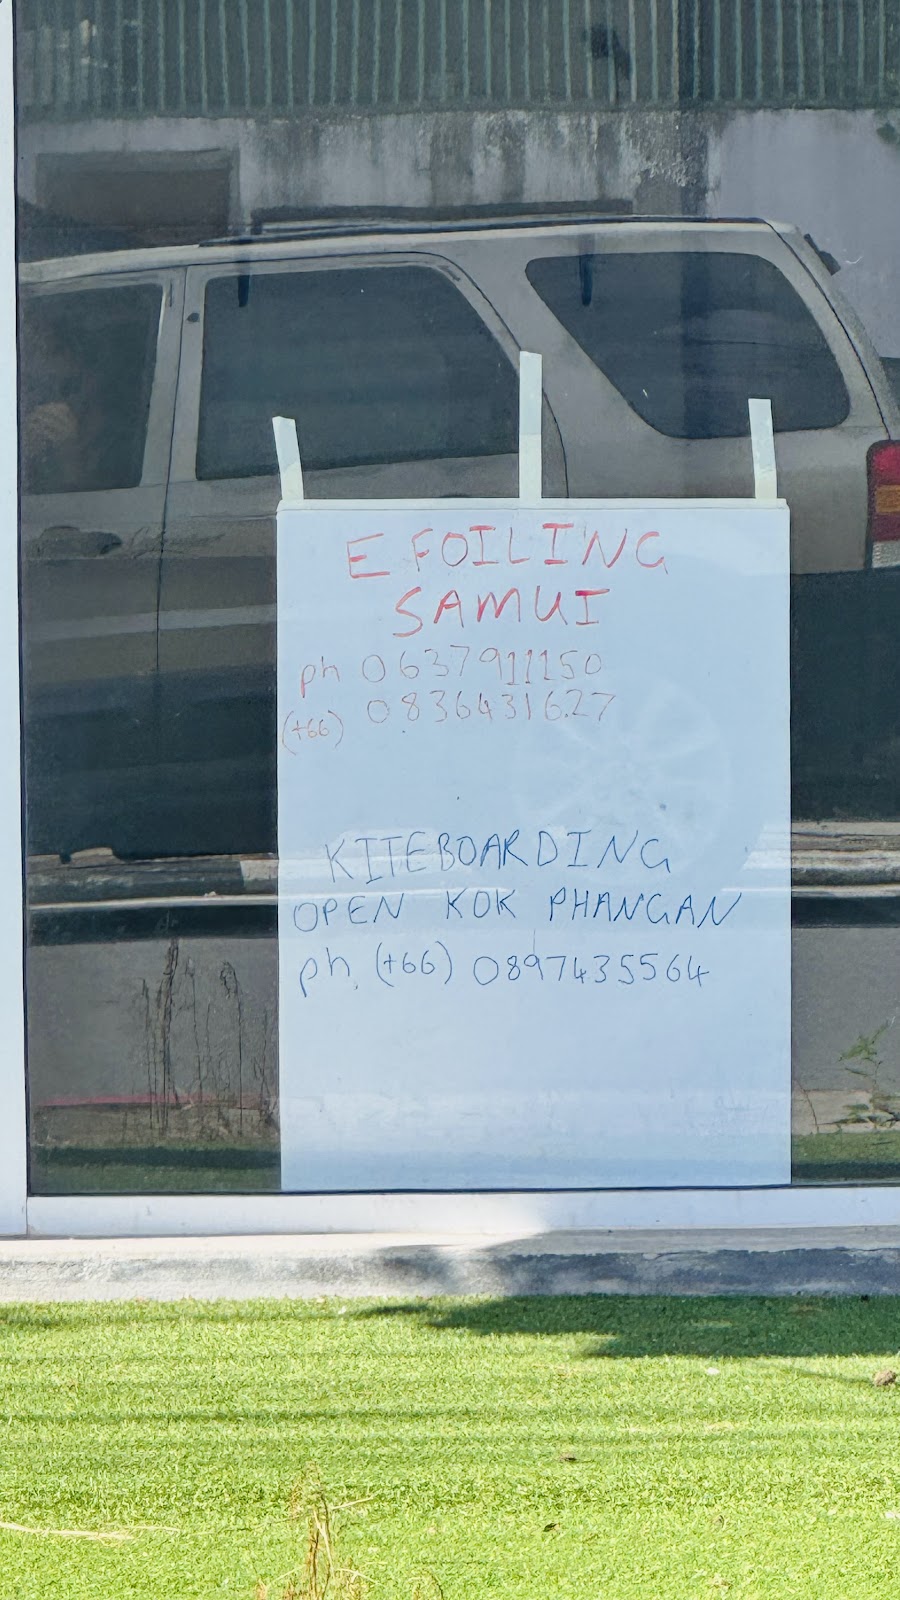 E FOILING
SAMUI
ph 0637911150
(+66) 0836431627
KITEBOARDING
OPEN KOK PHANGAN
ph. (+66) 0897435564